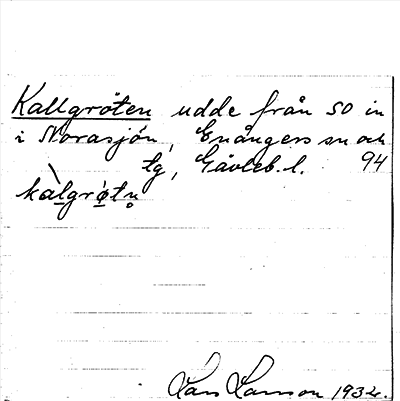 Kallgröten udde från SO in
i Norasjön, Enångers sn och
tg, Gävleb. l. 94
kàlgrø̀tn̥
Lars Larsson 1932.